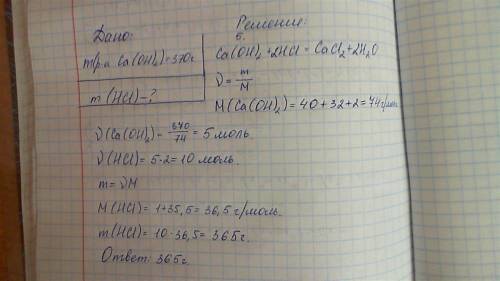 Дано:
m р-а Ca(OH)₂=370г
m (HCl)-?
Решение:
Б.
Ca(OH)₂+2HCl=CaCl₂+2H₂O
ν=m/M
M(Ca(OH)₂)=40+32+2=74г/моль
ν(Ca(OH)₂)-370/74=5моль.
ν(HCl)=5·2=10моль.
m=νM
M(HCl)=1+35,5=36,5г/моль.
m(HCl)=10·36,5=365г.
Ответ: 365г